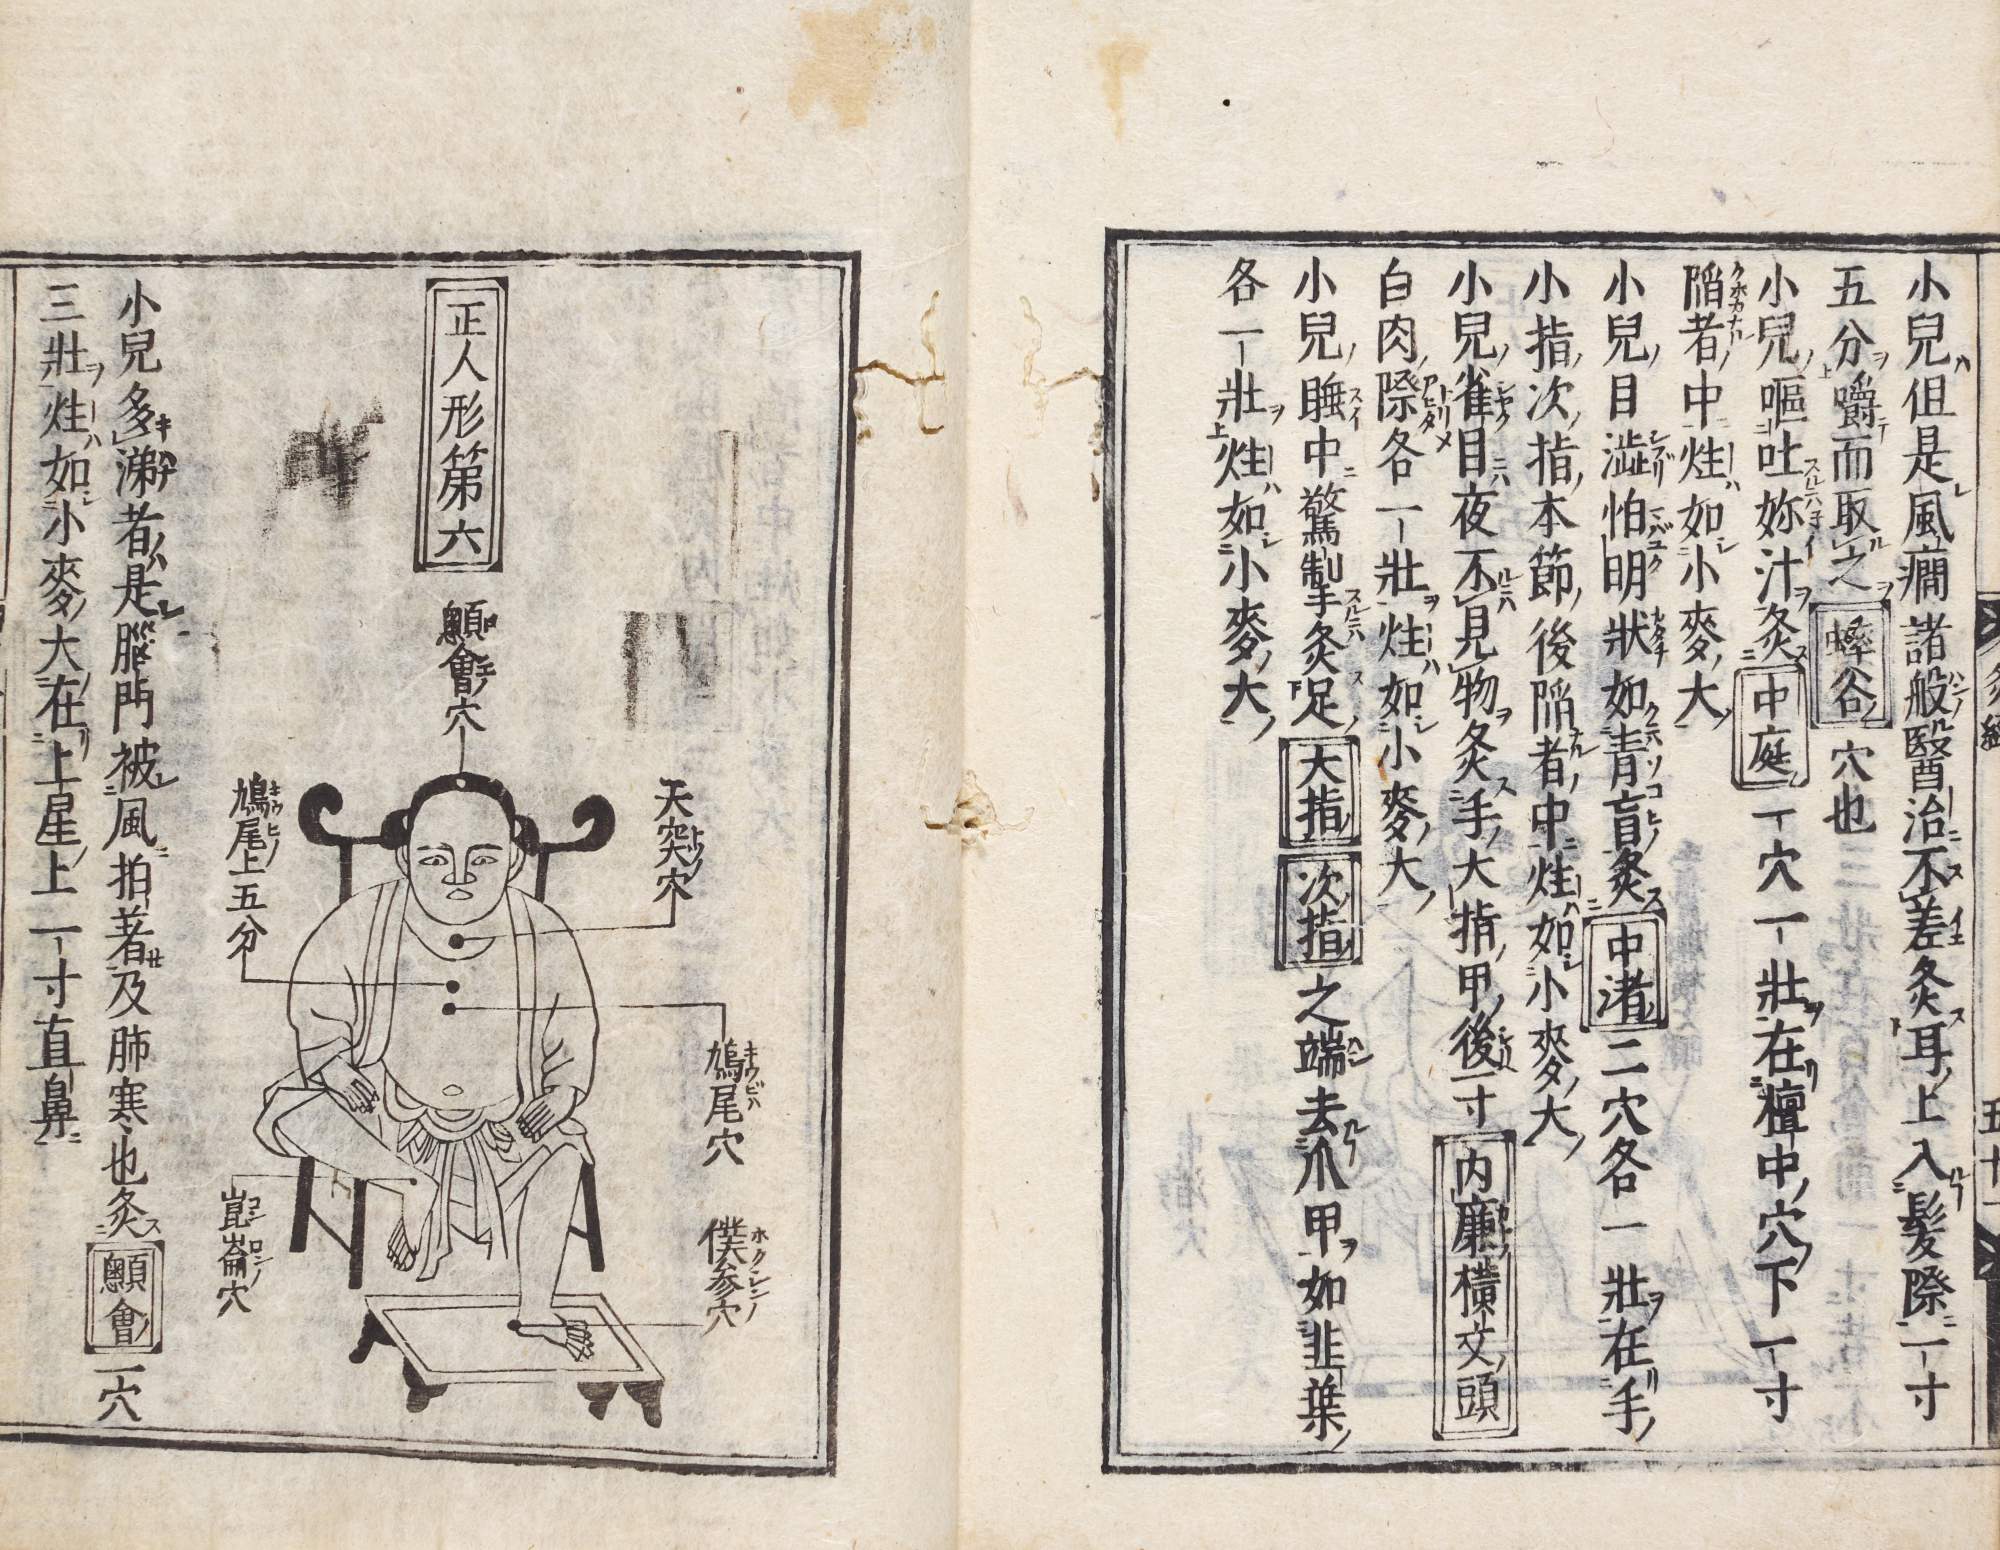 小兒但是風癇諸般醫治不差灸耳上入髮際一寸
五分嚼而取之蟀谷穴也
小兒嘔吐妳汁灸中庭一穴一壯在檀中穴下一寸
陷者中炷如小麥大
小兒目澁怕明狀如青盲灸中渚二穴各一壯在手
小指次指本節後陷者中炷如小麥大
小兒雀目夜不見物灸手大指甲後一寸內廉橫文頭
白肉際各一壯炷如小麥大
小兒睡中驚掣灸足大指次指之端去爪甲如韭葉
各一壯炷如小麥大
灸經
五十一
正人形第六
顖會穴
天突穴
鳩尾上五分
鳩尾穴
僕參穴
崑崙穴
小兒多涕者是腦門被風拍著及肺寒也灸顖會一穴
三壯炷如小麥大在上星上一寸直鼻